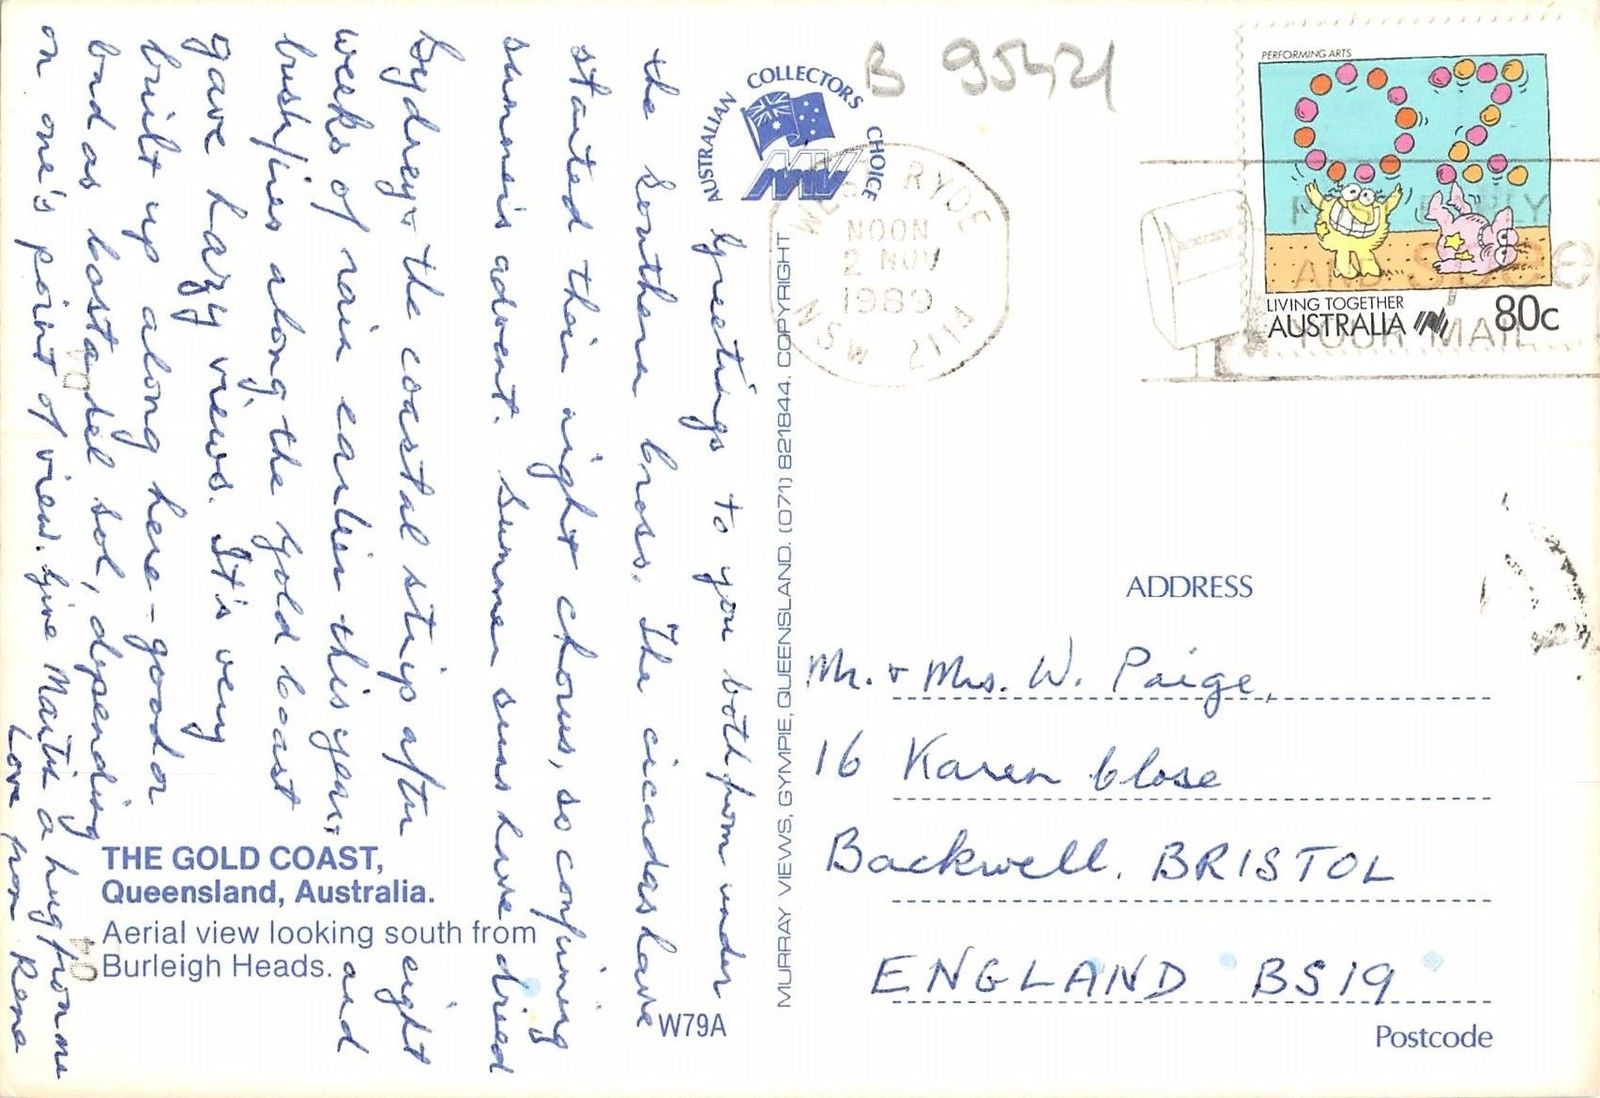 Greetings to you both from under
the Southern Cross. The cicadas have
started their night chorus, so confirming
summer's advent. Summer suns have dried
Sydney & the coastal strip after eight
weeks of rain earlier this year, and
bush fires along the Gold Coast
gave hazy views. It's very
built up along here - good or
bad as Costa del Sol, depending
on one's point of view. Give Martin a hug from me
Love from Rena
AUSTRALIAN COLLECTORS CHOICE
MV
B 95421
THE GOLD COAST,
Queensland, Australia.
Aerial view looking south from
Burleigh Heads.
W79A
MURRAY VIEWS, GYMPIE, QUEENSLAND. (071) 821844. COPYRIGHT
WEST RYDE
NOON
2 NOV
1989
NSW 2114
PERFORMING ARTS
OZ
LIVING TOGETHER
AUSTRALIA 80c
AND Spee
YOUR MAIL
ADDRESS
Mr. & Mrs. W. Paige,
16 Karen Close
Backwell. BRISTOL
ENGLAND BS19
Postcode